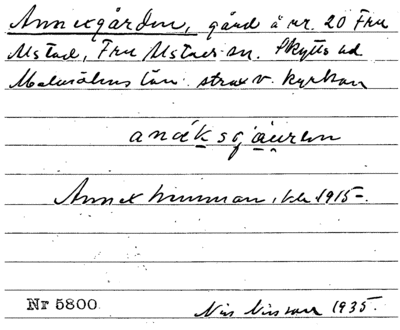 Annexgården, gård å nr. 20 Fru
Alstad, Fru Alstads sn. Skytts hd
Malmöhus län. strax v. kyrkan
anäksgäuren
Annexhemman, 1915-.
Nr 5800. Nils Nilsson 1935.